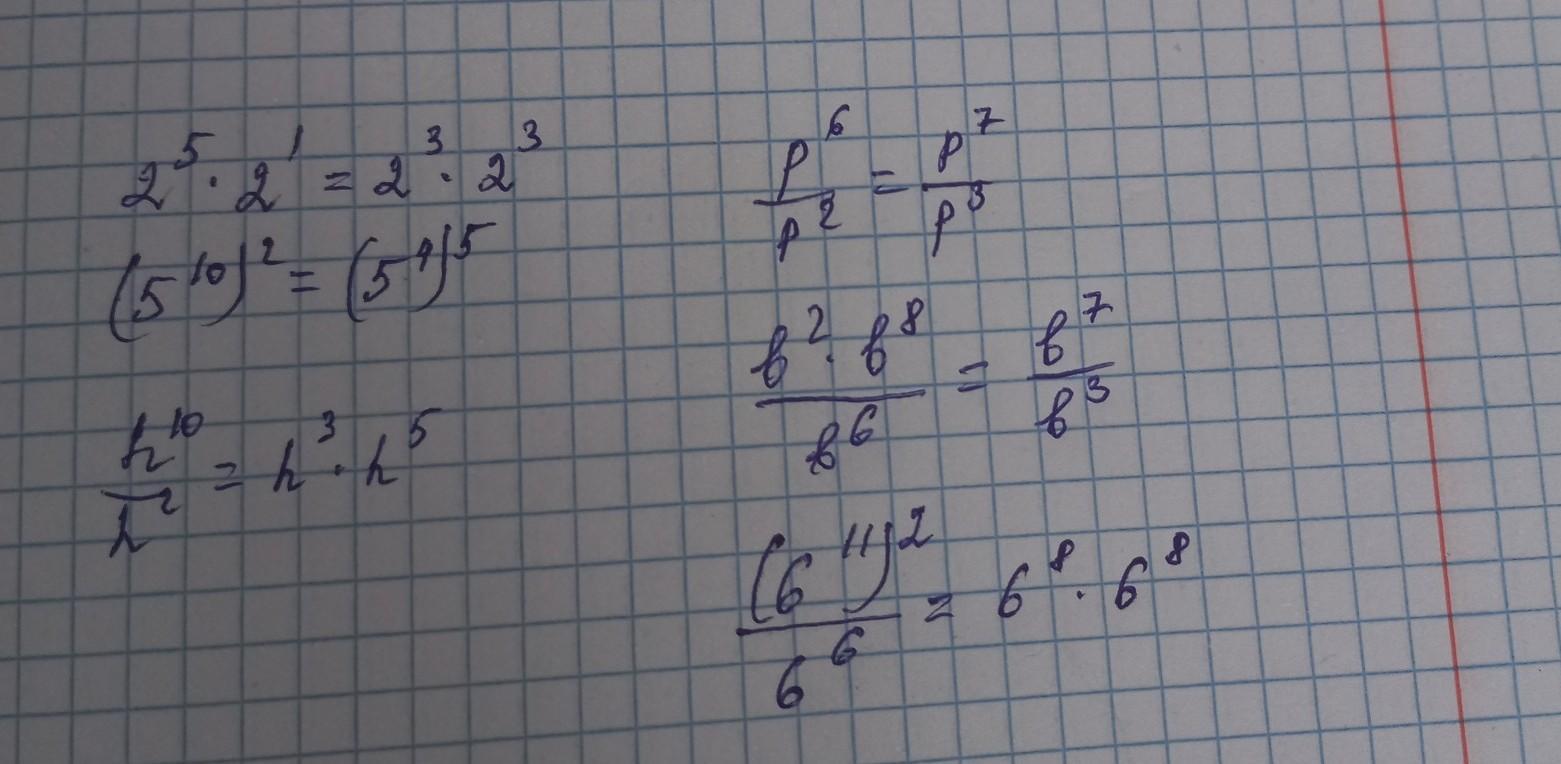 2⁵ · 2¹ = 2³ · 2³
(5¹⁰)² = (5⁴)⁵
h¹⁰/h² = h³ · h⁵
p⁶/p² = p⁷/p³
в² · в⁸/в⁶ = в⁷/в³
(6¹¹)²/6⁶ = 6⁸ · 6⁸